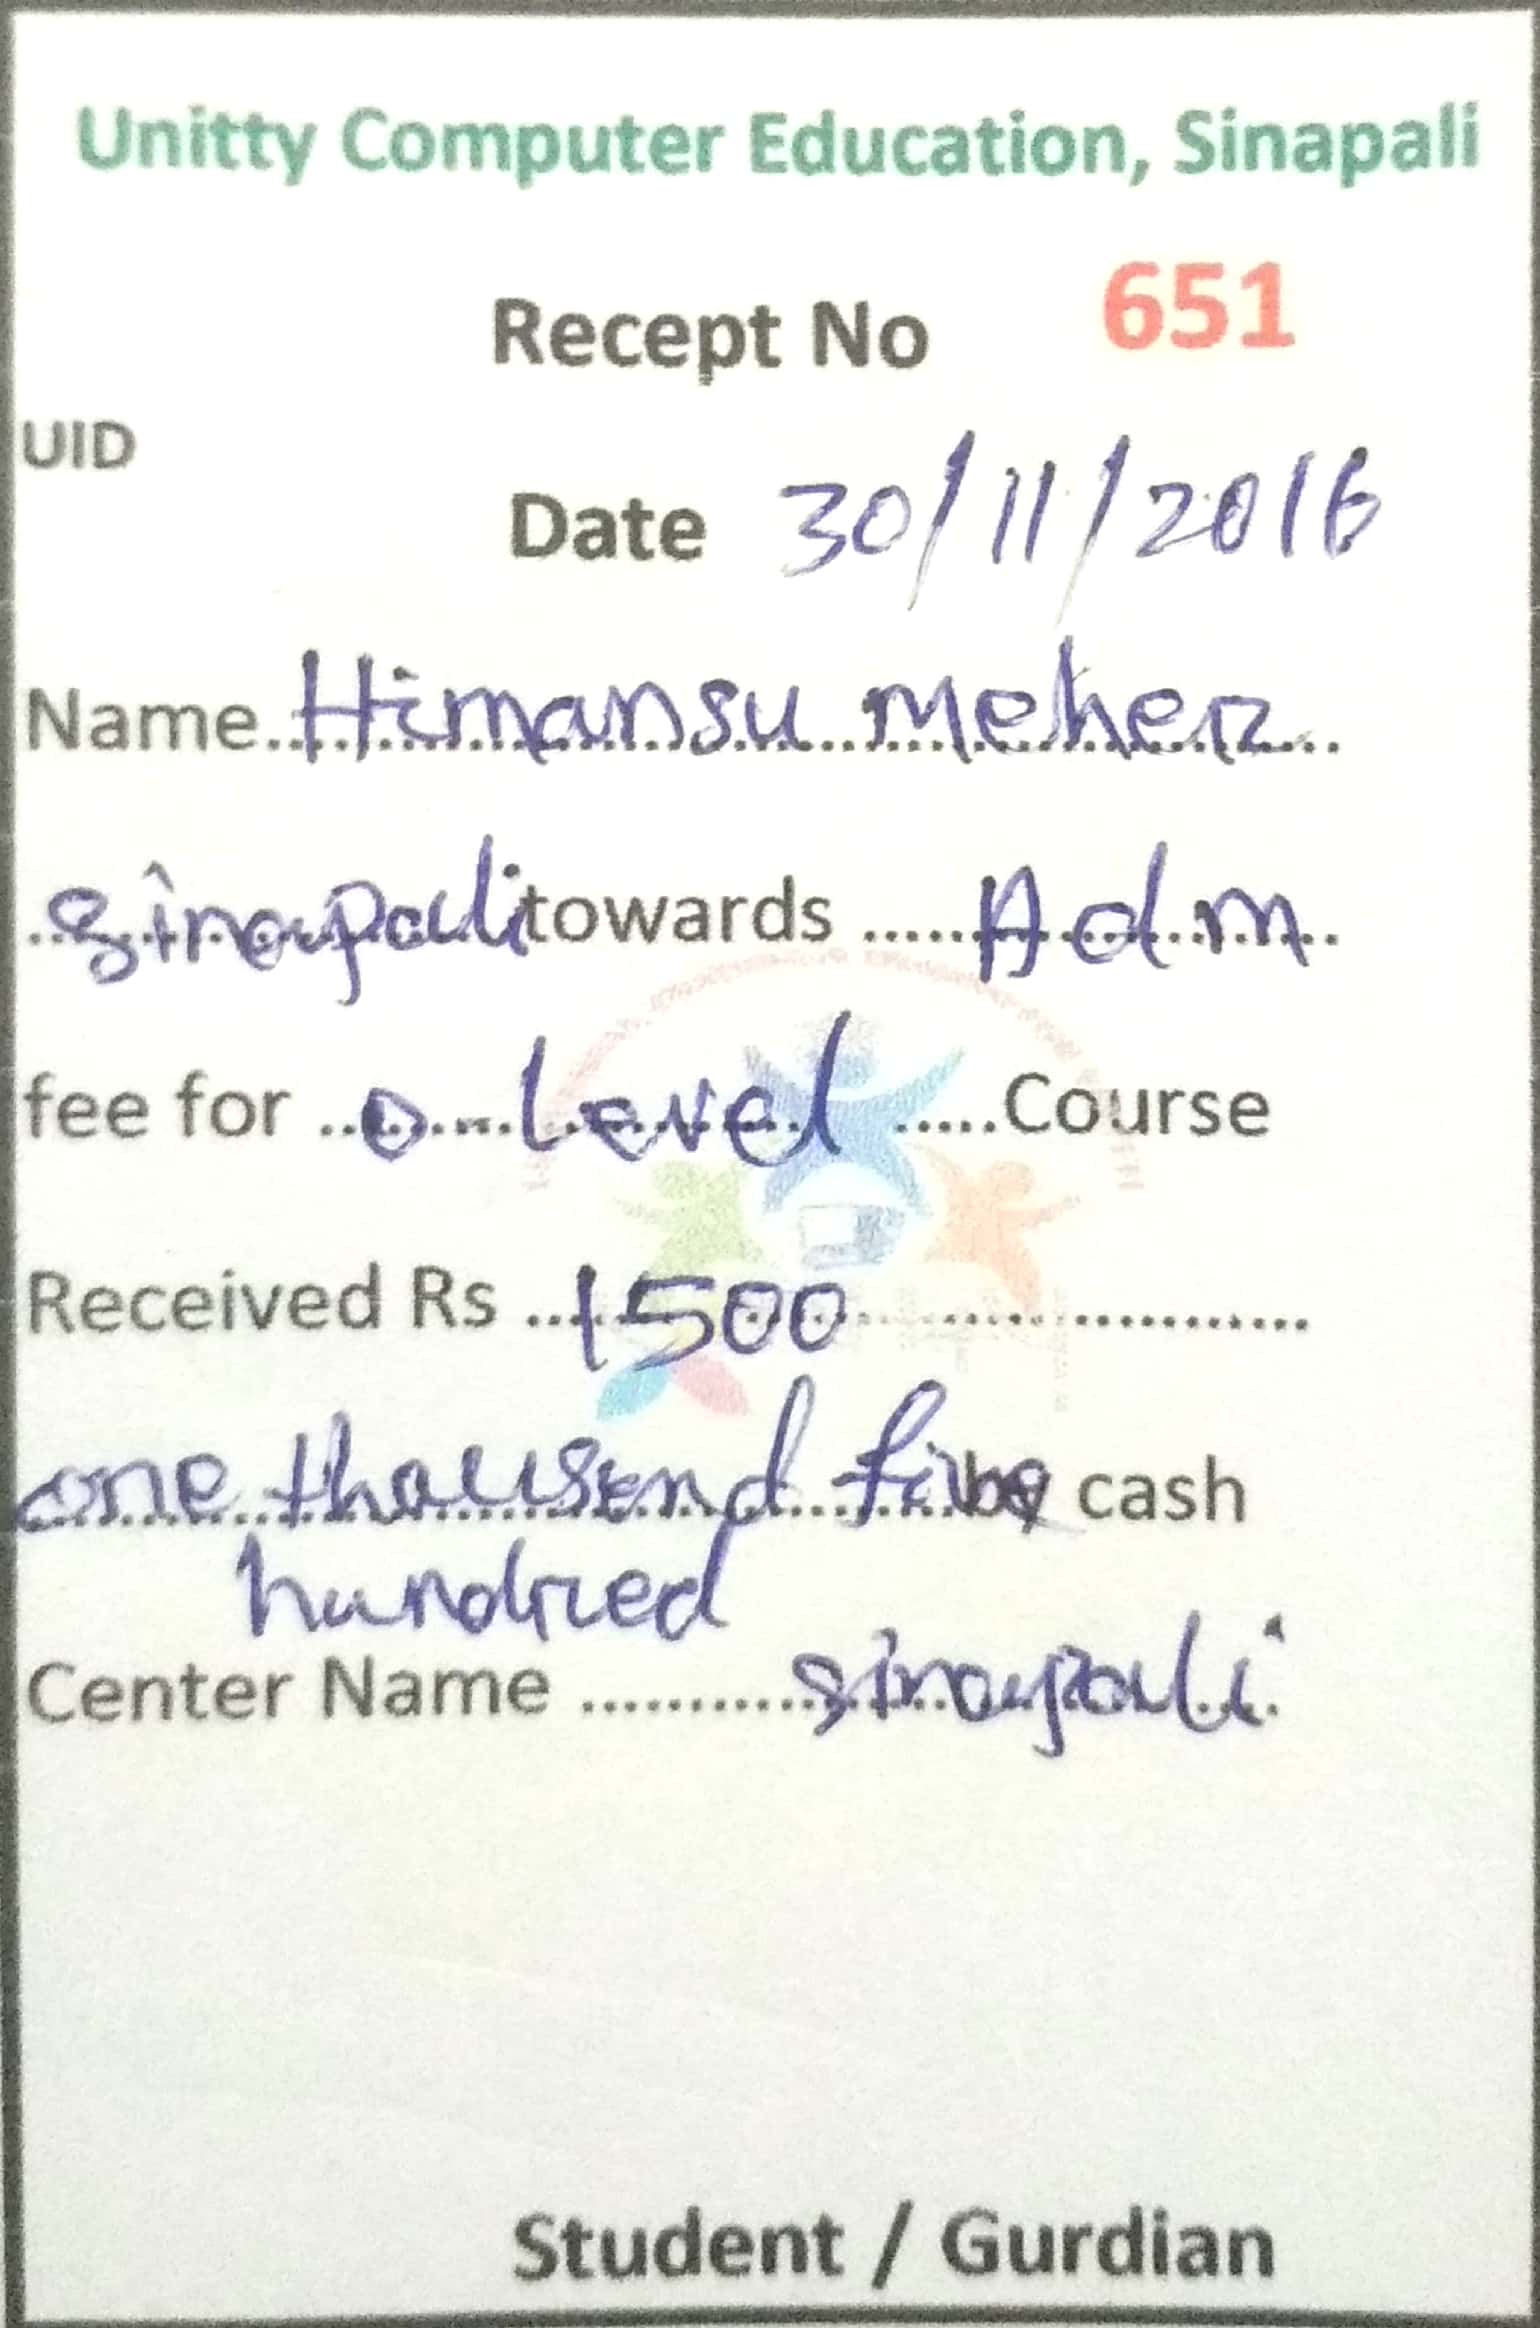 Unitty Computer Education, Sinapali
Recept No 651
UID
Date 30/11/2016
Name Himansu Meher
Sinapali towards ..... Adm
fee for ... O Level .....Course
Received Rs ... 1500 ...............
one thousend five by cash
hundred
Center Name ........... Sinapali
Student / Gurdian